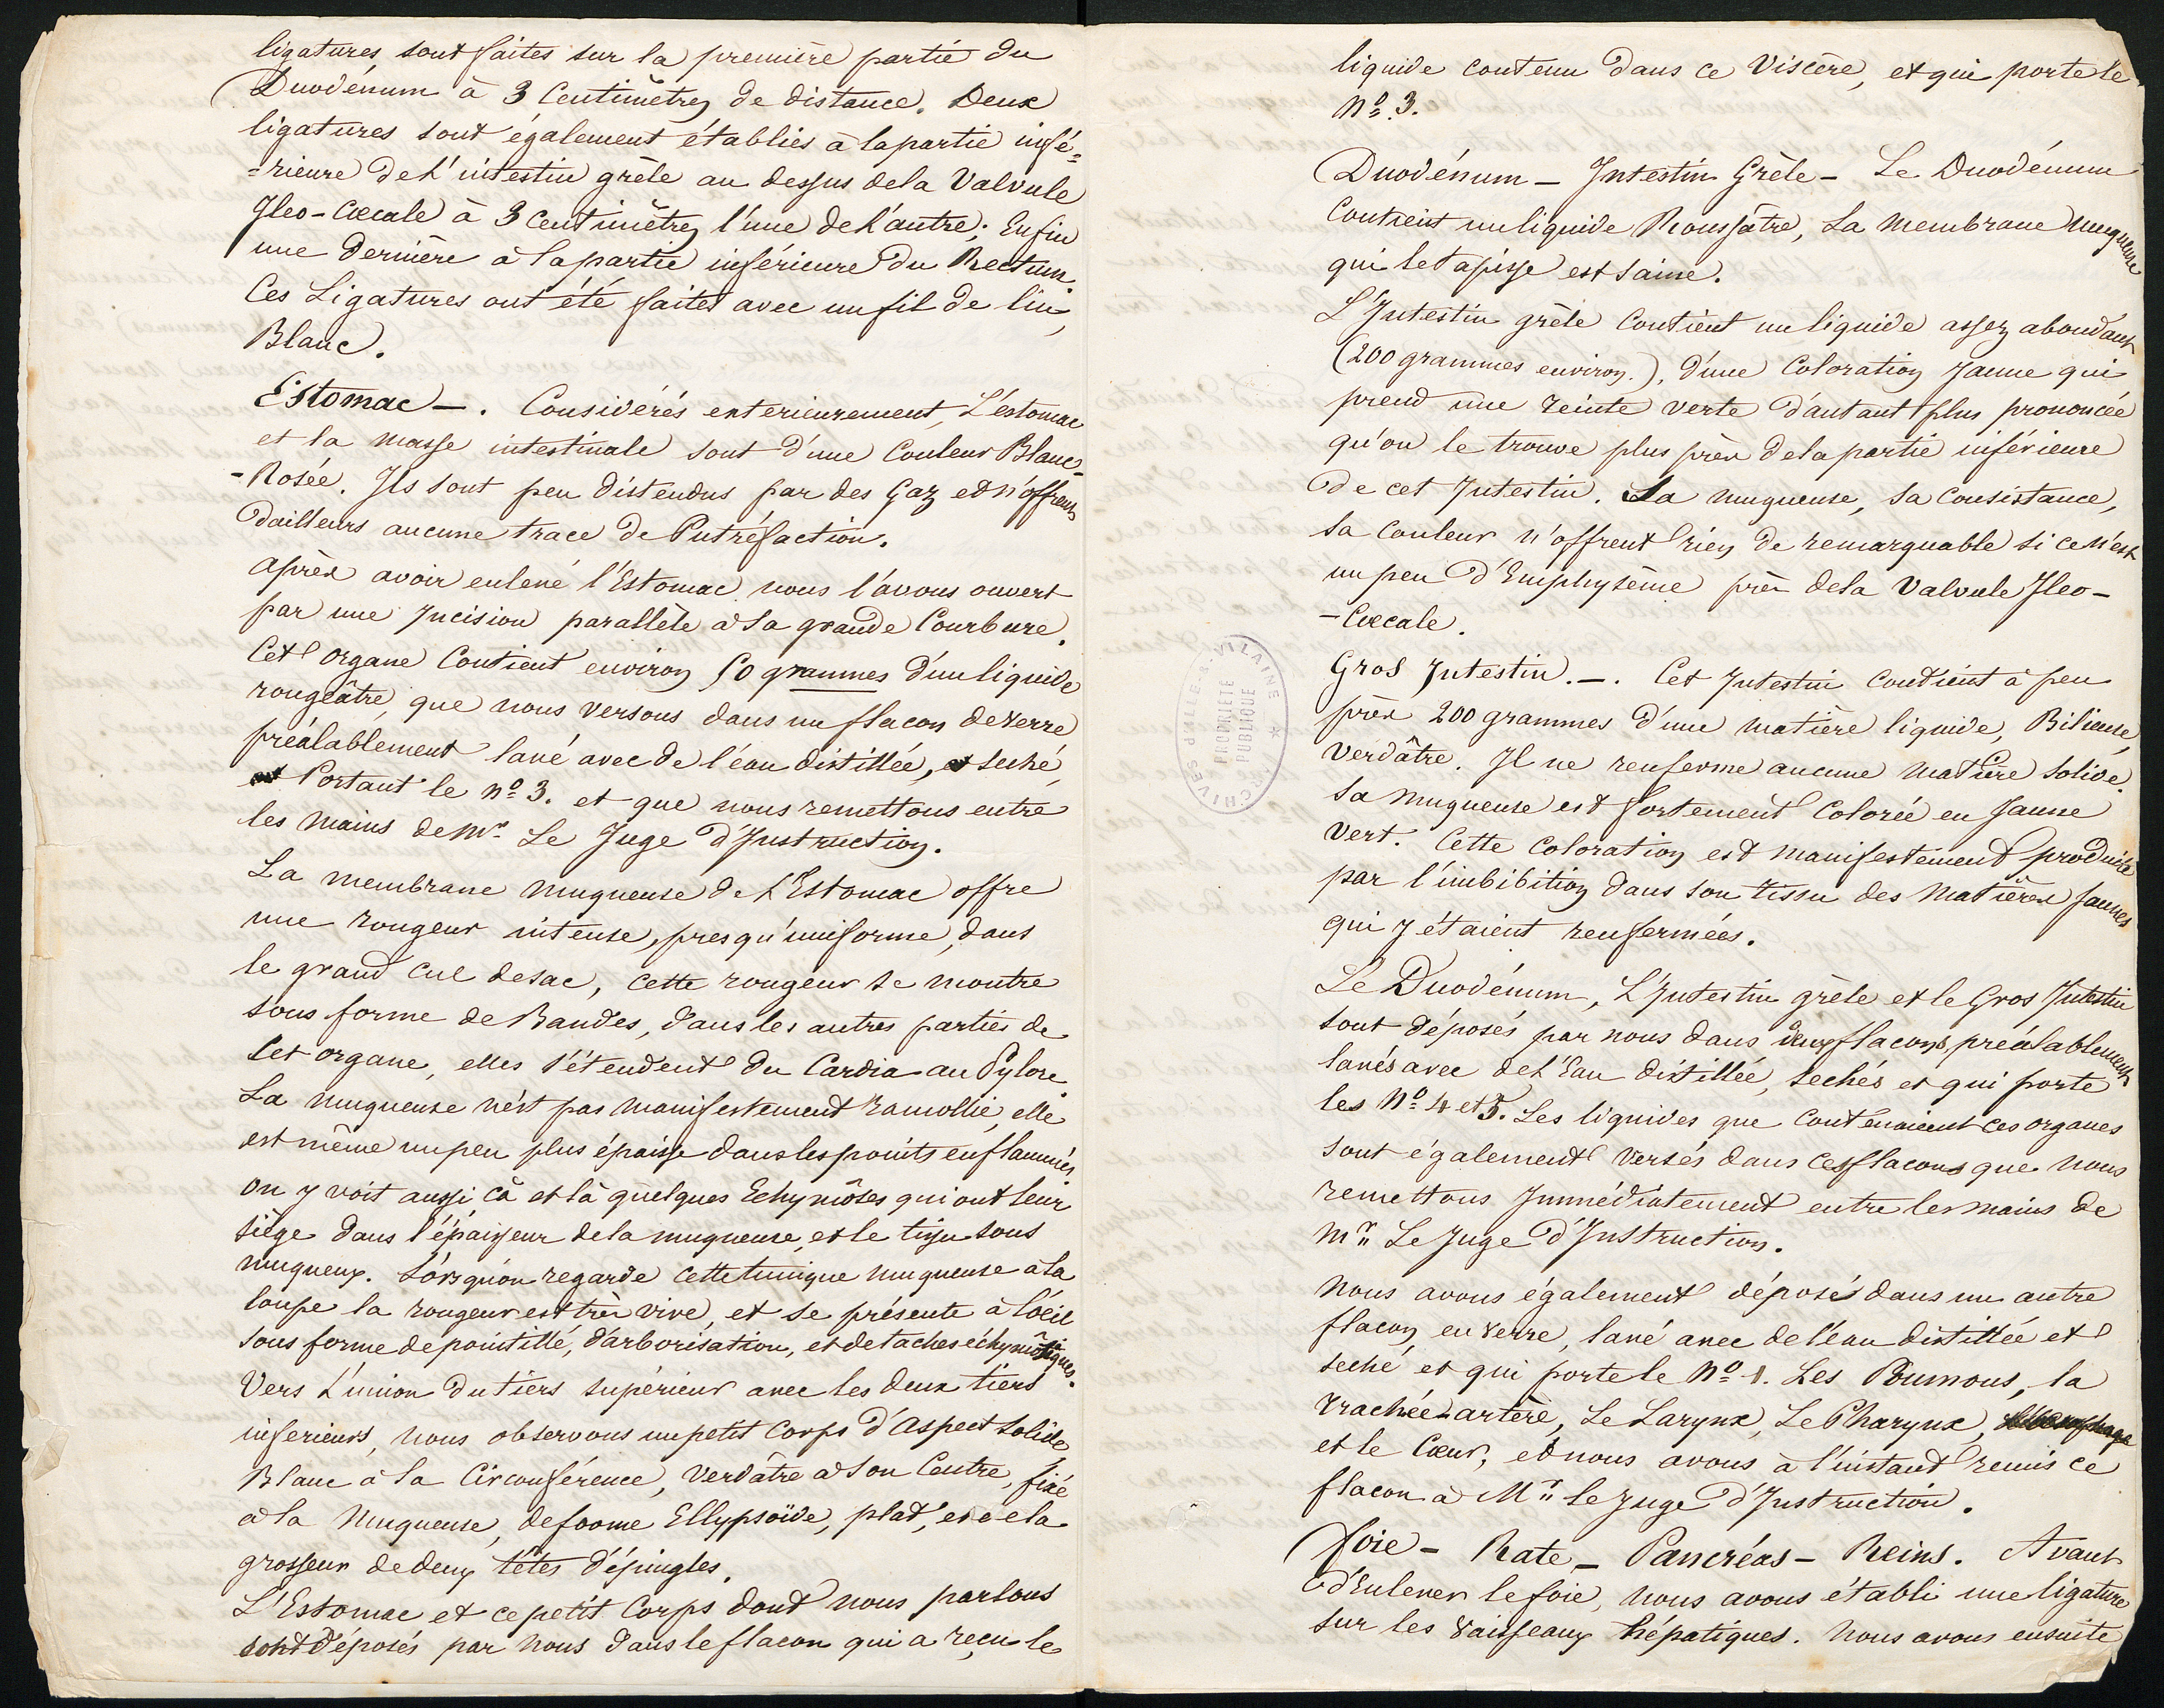 ligatures, sont faites sur la première partie du
Duodénum à 3 Centimètres de distance. Deux
ligatures sont également établies à la partie infé=
=rieure de L'intestin grèle au dessus de la Valvule
Iléo-Cœcale à 3 centimètres l'une de L'autre; Enfin
une dernière à la partie inférieure du Rectum.
Ces Ligatures ont été faites avec un fil de lin,
Blanc.
Estomac -. Considérés exterieurement, L'estomac
et la masse intestinale sont d'une Couleur Blanc-
-Rosée. Ils sont peu distendus par des Gaz et n'offrent
d'ailleurs aucune trace de Putréfaction.
après avoir enlevé l'Estomac nous l'avons ouvert
par une Incision parallèle à la grande Courbure.
Cet organe Contient environ 50 grammes d'un liquide
rougeâtre, que nous versons dans un flacon de verre
préalablement lavé avec de l'eau distillée, et seché,
Portant le nº 3. et que nous remettons entre
les mains de Mr. Le Juge d'Instruction.
La membrane muqueuse de L'Estomac offre
une rougeur intense, presqu'uniforme, dans
le grand cul de sac, cette rougeur se montre
sous forme de Bandes, dans les autres parties de
cet organe, elles s'étendent du Cardia au Pylore
La muqueuse n'est pas manifestement ramollie, elle
est même un peu plus épaisse dans les points enflammés
on y voit aussi cà et là quelques Echymôses qui ont leur
siège dans l'épaisseur de la muqueuse, et le tissu sous
muqueux. Lorsqu'on regarde cette tunique muqueuse à la
loupe la rougeur est très vive, et se présente à l'oeil
sous forme de pointillé, d'arborisation, et de taches échymôtiques.
Vers L'union du tiers supérieur avec les deux tiers
inferieurs, nous observons un petit Corps d'aspect solide
Blanc à la Circonférence, Verdâtre à son Centre, fixé
à la Muqueuse, de forme Ellypsoïde, plat, et de la
grosseur de deux têtes d'épingles.
L'Estomac et ce petit Corps dont nous parlons
sont déposés par nous dans le flacon qui a reçu le
liquide contenu dans ce Viscère, et qui porte le
Nº 3.
Duodénum - Intestin Grèle - Le Duodénum
Contient un liquide Roussâtre, La membrane muqueuse
qui le tapisse est saine.
L'Intestin grèle Contient un liquide assez abondant
(200 grammes environ.), d'une Coloration Jaune qui
prend une teinte verte d'autant plus prononcée
qu'on le trouve plus près de la partie inférieure
de cet Intestin. Sa muqueuse, sa Consistance,
sa Couleur n'offrent rien de remarquable si ce n'est
un peu d'Emphysème près de la Valvule Iléo-
-Cœcale.
Gros Intestin.-. Cet Intestin Contient à peu
près 200 grammes d'une matière liquide, Bilieuse,
Verdâtre. Il ne renferme aucune matière solide.
Sa muqueuse est fortement Colorée en Jaune
Vert. Cette Coloration est manifestement produite
par l'imbibition dans son tissu des Matières jaunes
qui y étaient renfermées.
Le Duodénum, L'Intestin grèle et le Gros Intestin
sont déposés par nous dans deux flacons, préalablement
lavés avec de L'Eau distillée, sechés et qui porte
les Nº 4 et 5. Les liquides que Contenaient ces organes
sont également versés dans ces flacons que nous
remettons Immédiatement entre les mains de
Mr. Le Juge d'Instruction.
nous avons également déposé dans un autre
flacon en verre, lavé avec de l'eau distillée et
seché et qui porte le Nº 1. Les Poumons, la
trachée-artère, Le Larynx, Le Pharynx,
et le Cœur, et nous avons à l'instant remis ce
flacon à Mr. le Juge d'Instruction.
foie - Rate - Pancréas - Reins. Avant
d'Enlever le foie, nous avons établi une ligature
sur les Vaisseaux hépatiques. Nous avons ensuite
ARCHIVES D'ILLE-&-VILAINE
PROPRIÉTÉ
PUBLIQUE